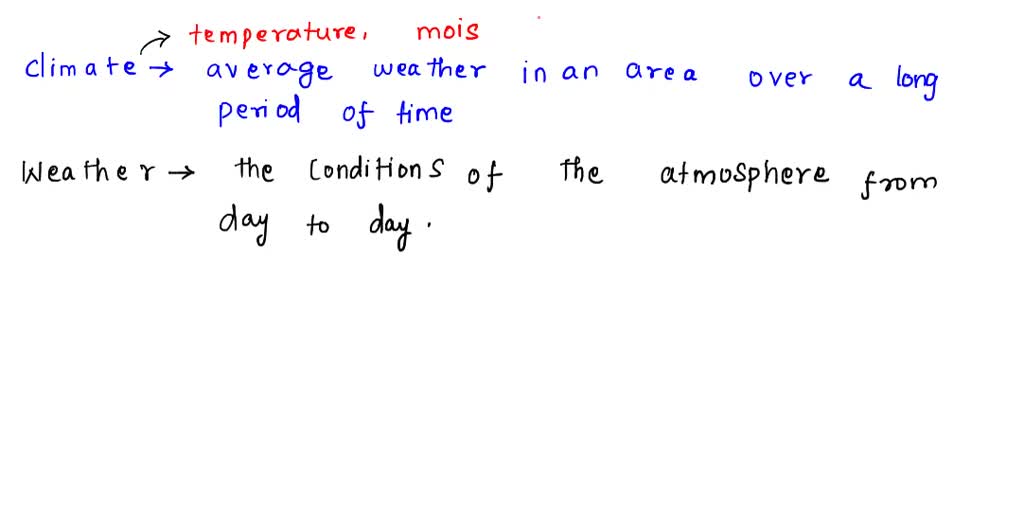 temperature, mois
Climate → average weather in an area over a long
period of time
Weather → the Conditions of the atmosphere from
day to day.